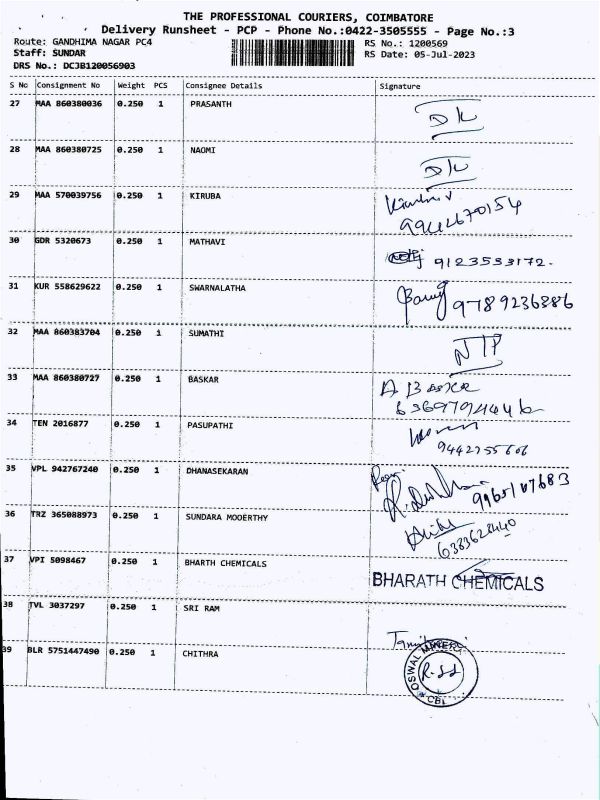 THE PROFESSIONAL COURIERS, COIMBATORE
Delivery Runsheet - PCP - Phone No.:0422-3505555 - Page No.:3
Route: GANDHIMA NAGAR PC4 RS No.: 1200569
Staff: SUNDAR RS Date: 05-Jul-2023
DRS No.: DCJB120056903
S No Consignment No Weight PCS Consignee Details Signature
27 MAA 860380036 0.250 1 PRASANTH
28 MAA 860380725 0.250 1 NAOMI
29 MAA 570039756 0.250 1 KIRUBA
30 GDR 5320673 0.250 1 MATHAVI
9123533172.
31 KUR 558629622 0.250 1 SWARNALATHA
9789236886
32 MAA 860383704 0.250 1 SUMATHI
33 MAA 860380727 0.250 1 BASKAR
34 TEN 2016877 0.250 1 PASUPATHI
35 VPL 942767240 0.250 1 DHANASEKARAN
36 TRZ 365088973 0.250 1 SUNDARA MOOERTHY
37 VPI 5098467 0.250 1 BHARTH CHEMICALS
BHARATH CHEMICALS
38 TVL 3037297 0.250 1 SRI RAM
39 BLR 5751447490 0.250 1 CHITHRA
OSWAL